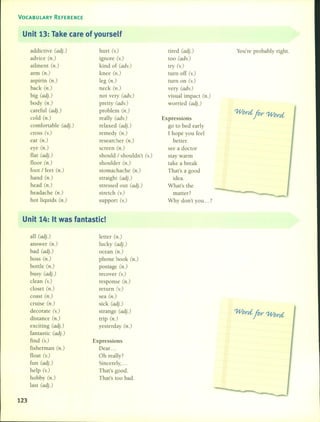 VOCABULARY REFERENCE
Unit 13: Take care of yourself
addictive (adj.)
advice (n.)
ailment (n.)
arm (n.)
aspirin (n.)
back (n.)
big (adj.)
body (n.)
careful (adj.)
cold (n.)
comfortable (adj.)
cross (v.)
ear (n.)
eye (n.)
flat (adj.)
floor (n.)
foot / feet (n.)
hand (n.)
head (n.)
headache (n.)
hot liquids (n.)
hurt (v.)
ignore (v.)
kind of (adv.)
knee (n.)
leg (n.)
neck (n.)
not very (adv.)
pretty (adv.)
problem (n.)
really (adv.)
relaxed (adj.)
remedy (n.)
researcher (n.)
screen (n.)
should / shouldn't (v.)
shoulder (n.)
stomachache (n.)
straight (adj.)
stressed out (adj.)
stretch (v.)
support (v.)
tired (adj.)
too (adv.)
try (v.)
turn off (v.)
turn on (v.)
very (adv.)
visual impact (n.)
worried (adj.)
Expressions
go to bed early
I hope you feel
better.
see a doctor
stay warm
take a break
That's a good
idea.
What's the
matter?
Why don't you...?
You're probably right.
Word for Word
Unit 14: It was fantastic!
all (adj.)
answer (n.)
bad (adj.)
boss (n.)
bottle (n.)
busy (adj.)
clean (v.)
closet (n.)
coast (n.)
cruise (n.)
decorate (v.)
distance (n.)
exciting (adj.)
fantastic (adj.)
find (v.)
fisherman (n.)
float (v.)
fun (adj.)
help (v.)
hobby (n.)
last (adj.)
letter (n.)
lucky (adj.)
ocean (n.)
phone book (n.)
postage (n.)
recover (v.)
response (n.)
return (v.)
sea (n.)
sick (adj.)
strange (adj.)
trip (n.)
yesterday (n.)
Expressions
Dear...
Oh really?
Sincerely,...
That's good.
That's too bad.
Word for Word
123